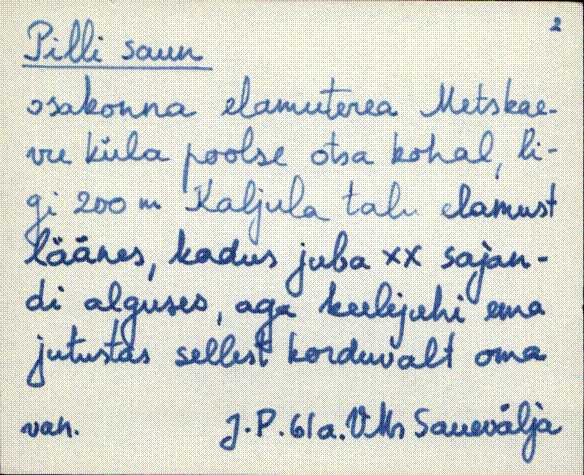 2
Pilli saun
osakonna elamuterea Metskae-
vu küla poolse otsa kohal, li-
gi 200 m Kaljula talu elamust
läänes, kadus juba XX sajan-
di alguses, aga keelejuhi ema
jutustas sellest korduvalt oma
van. J.P. 61a. VMr Sauevälja